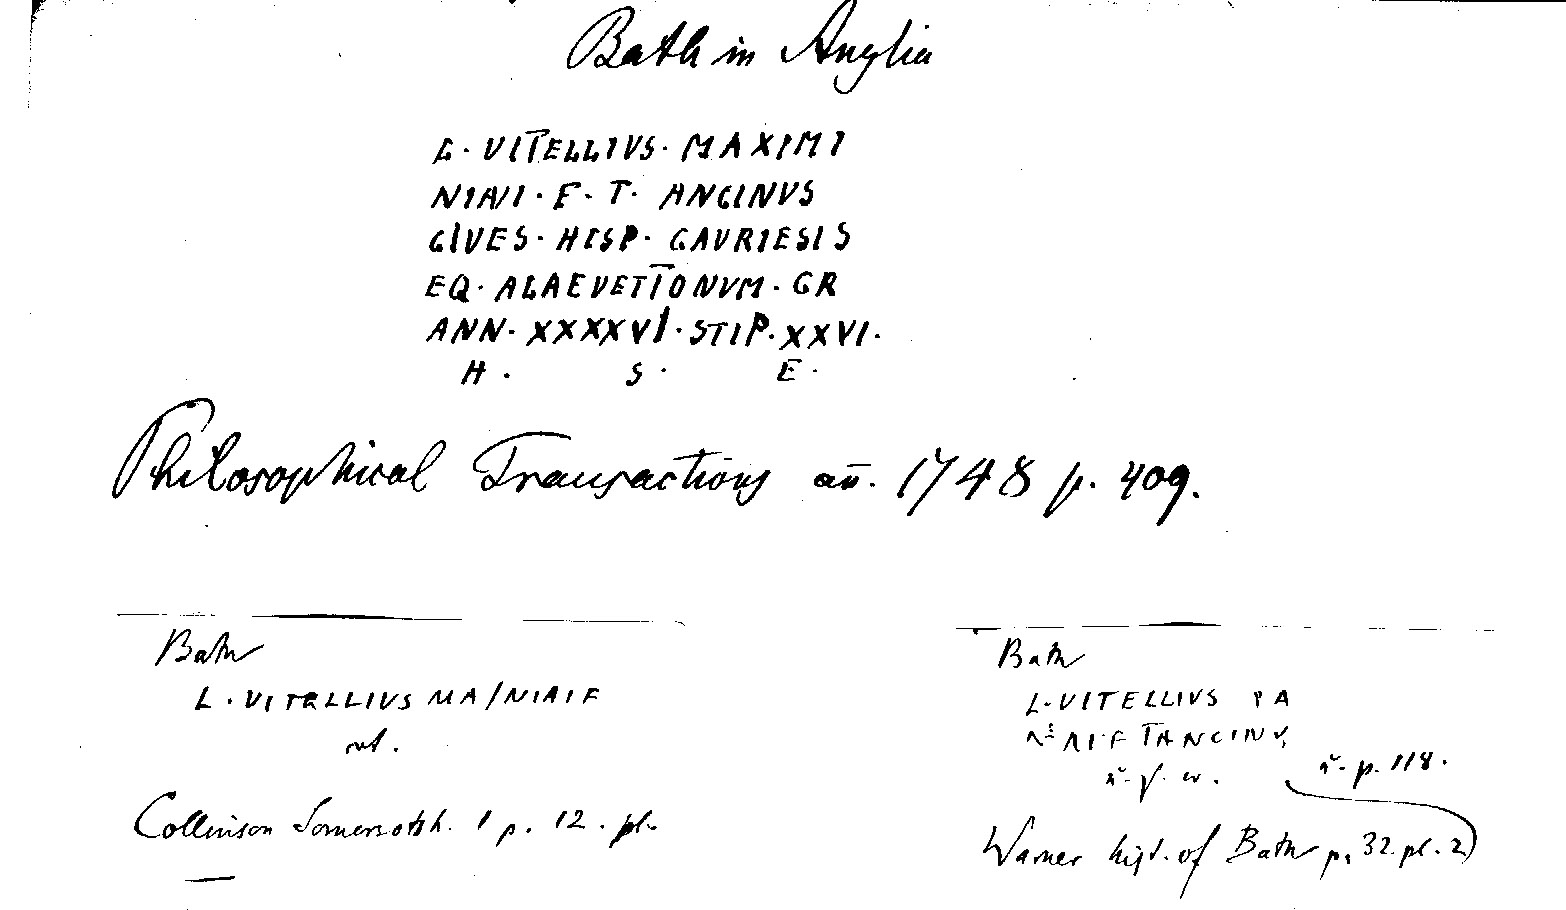 Bath in Anglia
L. VITELLIVS. MAXIMI
NIANI. F. T. ANCINVS
CIVES. HISP. CAVRIESIS
EQ. ALAEVETTONVM. CR
ANN. XXXXVI. STIP. XXVI.
H. S. E.
Philosophical Transactions an̄. 1748 p. 409.
Bath
L. VITELLIVS MA/NIAIF
Collinson Somersetsh. 1 p. 12. pl.
Bath
L. VITELLIVS
TANCINV
p. 118.
Warner hist. of Bath p. 32. pl. 2)